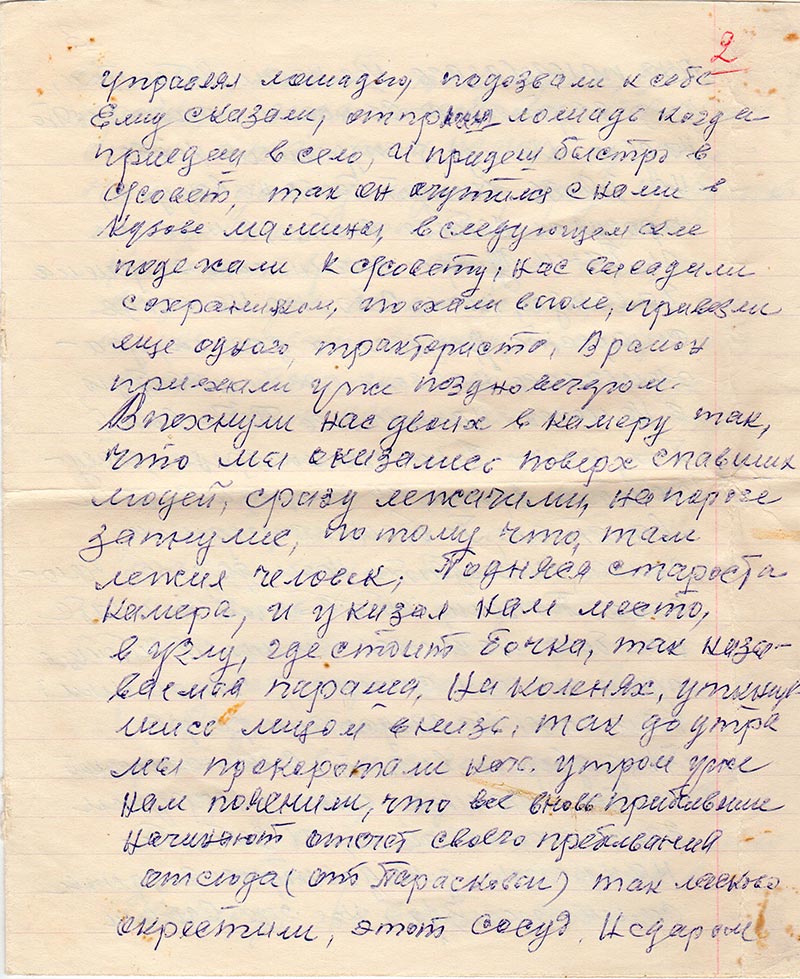 2
управлял лошадью, подозвали к себе
Ему сказали, лошадь когда
приедем в село, и придеш быстро в
с/совет, так он очутился с нами в
кузове машины, в следующем селе
подехали к с/совету, нас высадили
сохранником, поехали в поле, привезли
еще одного, тракториста, В район
приехали уже поздно вечером.
Впехнули нас двоих в камеру так,
что мы оказались поверх спавших
людей, сразу лежачими, на пороге
запнулись, потому что, там
лежил человек, Поднялся староста
камера, и указал нам место,
в углу, где стоит бочка, так назы-
ваемая параша, На коленях, уткнув
шись лицом вниз, так до утра
мы проскоротали ноч. утром уже
нам пояснили, что все вновь прибывшие
начинают отчет своего пребывания
отсюда (от Парасковьи) так ласково
окрестили, этот сосуд. Недаром